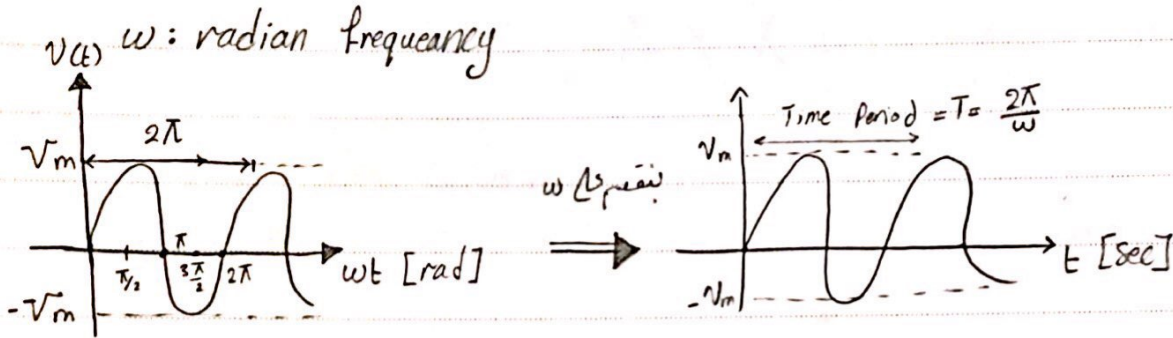 ω : radian frequeancy
V(t)
2π
Vm
π
π/2
3π/2
2π
ωt [rad]
-Vm
بنقسم على ω
Time Period = T = 2π/ω
Vm
t [sec]
-Vm